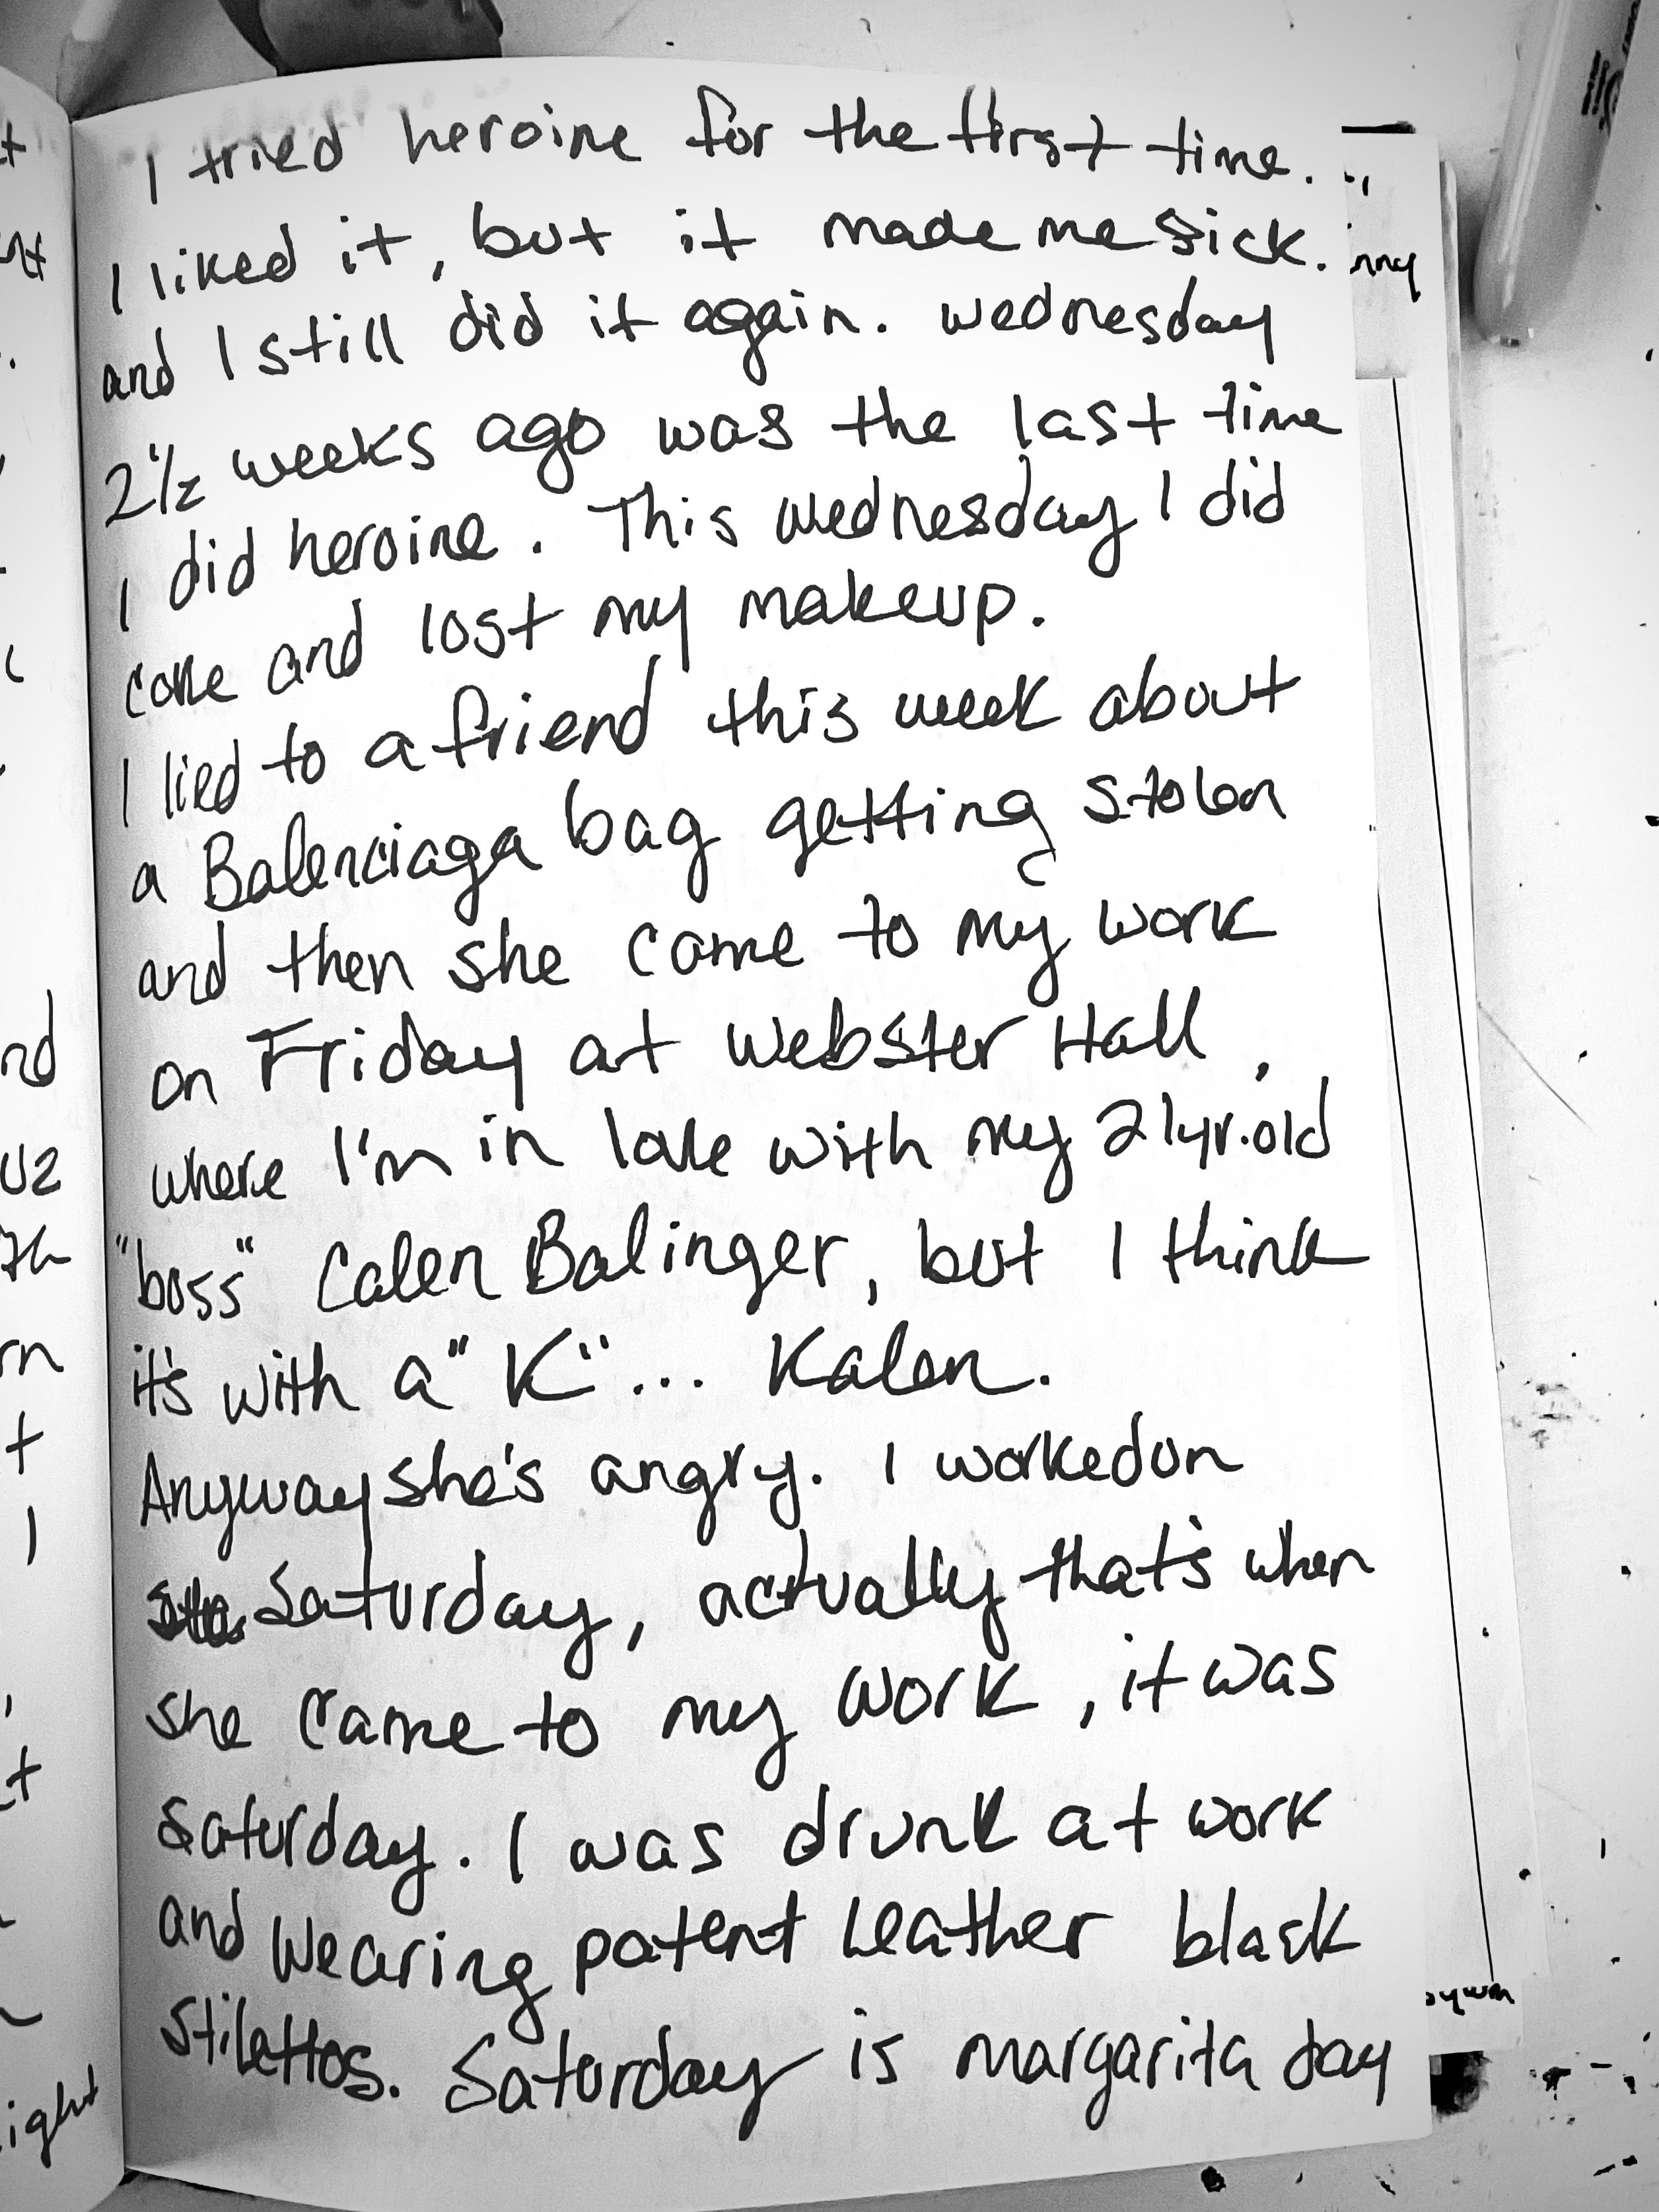 I tried heroine for the first time.
I liked it, but it made me sick.
and I still did it again. Wednesday
2 1/2 weeks ago was the last time
I did heroine. This Wednesday I did
coke and lost my makeup.
I lied to a friend this week about
a Balenciaga bag getting stolen
and then she came to my work
on Friday at Webster Hall,
where I'm in love with my 21yr.old
"boss" Calen Balinger, but I think
it's with a "K"... Kalen.
Anyway she's angry. I worked on
Saturday, actually that's when
she came to my work, it was
Saturday. I was drunk at work
and wearing patent leather black
stilettos. Saturday is margarita day